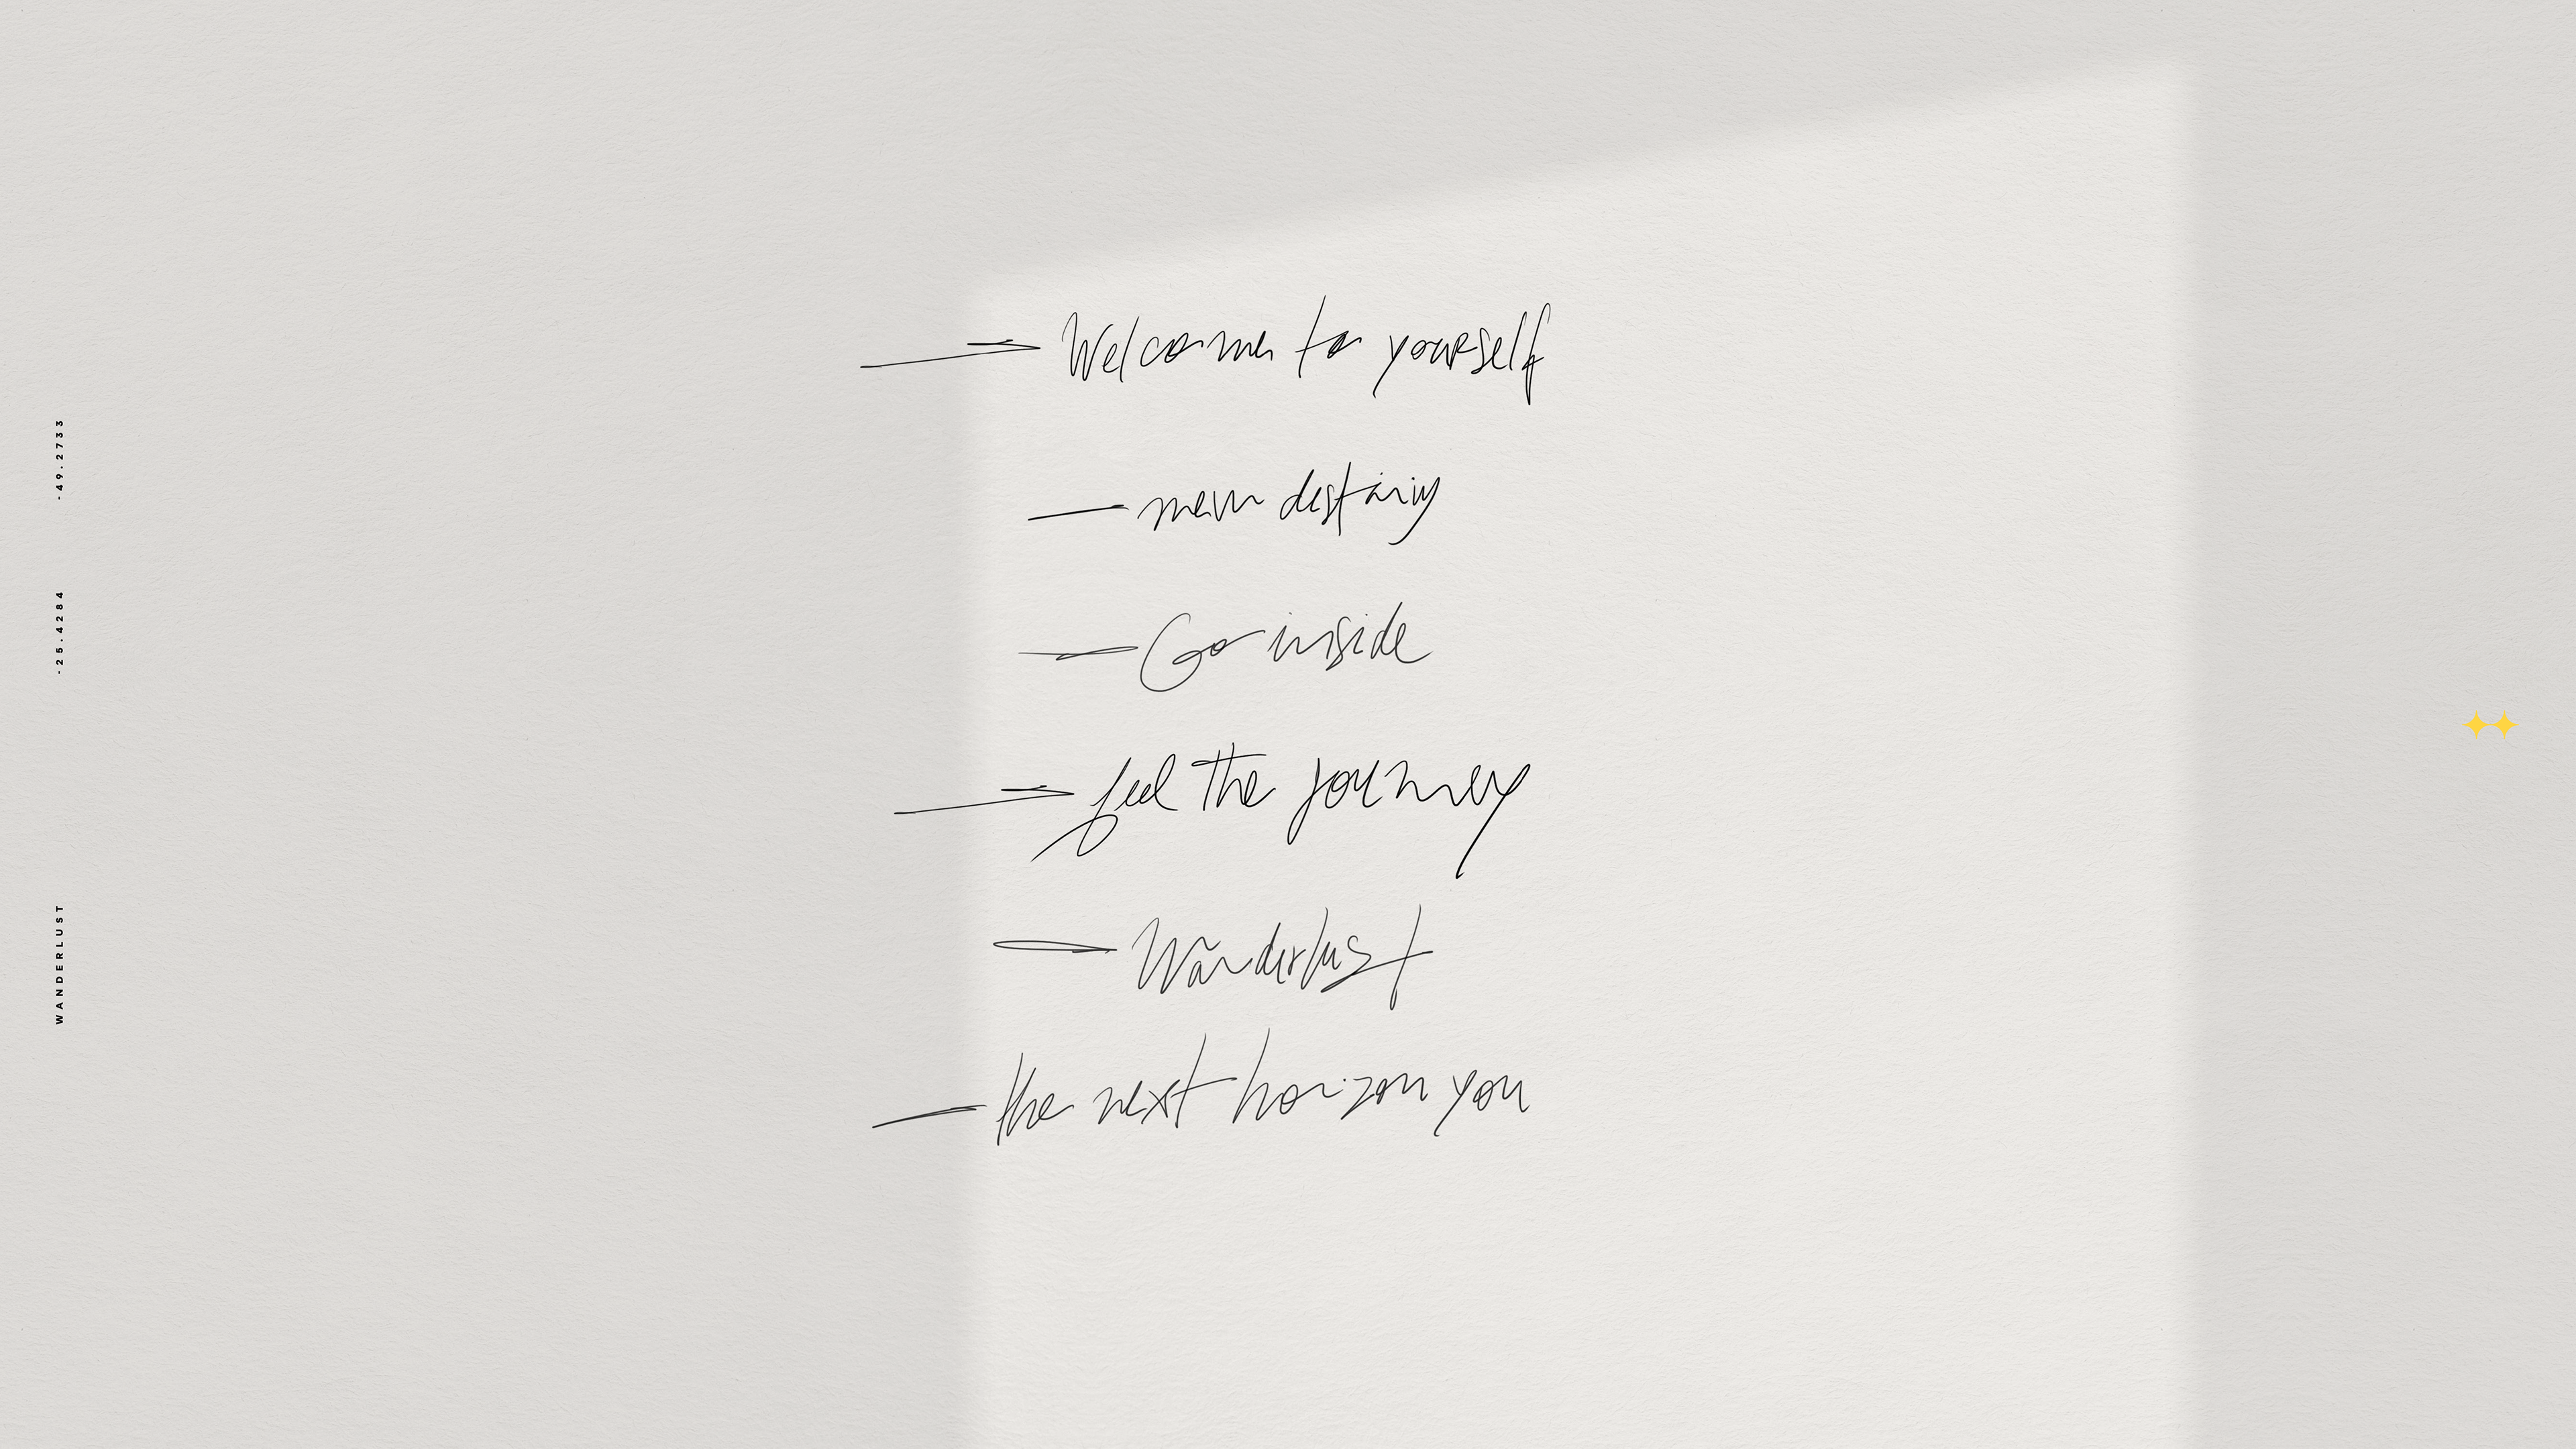 Welcome to yourself
new destiny
Go inside
feel the journey
Wanderlust
the next horizon you
-49.2733
-25.4284
WANDERLUST